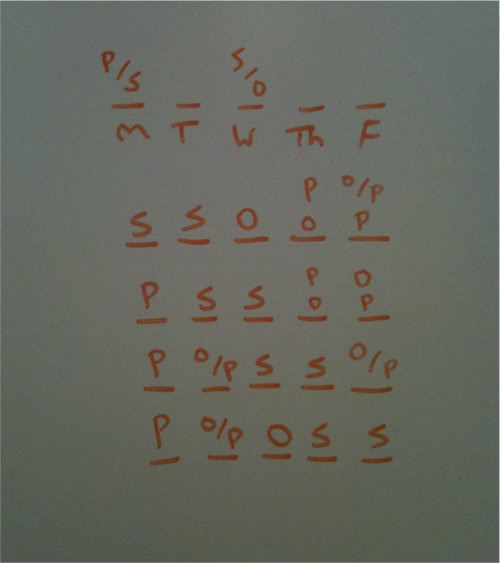 P/S S/O
M T W Th F
P O/P
S S O O P
P O
P S S O P
P O/P S S O/P
P O/P O S S